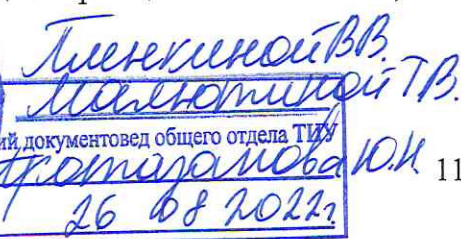 Пленкиной В.В.
Малютиной Т.В.
ий документовед общего отдела ТИУ
Ю.Н. 11
26 08 2022г